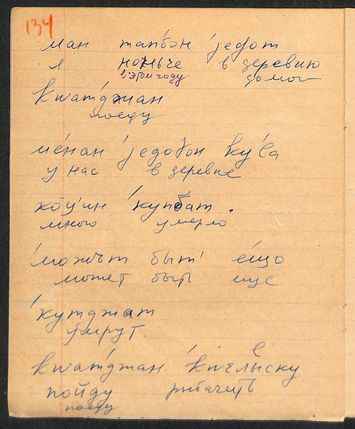 134
ман тапбон 'jедот
я ноньче в деревню
в этом году домой
кwатджан
поеду
ме́нан jедоɣон ку́са
у нас в деревне
коцин купбат.
много умерло
можът быт' ещо
может быть еще
кутджат
умрут.
кwатджан кwелыску
пойду рыбачить
поеду